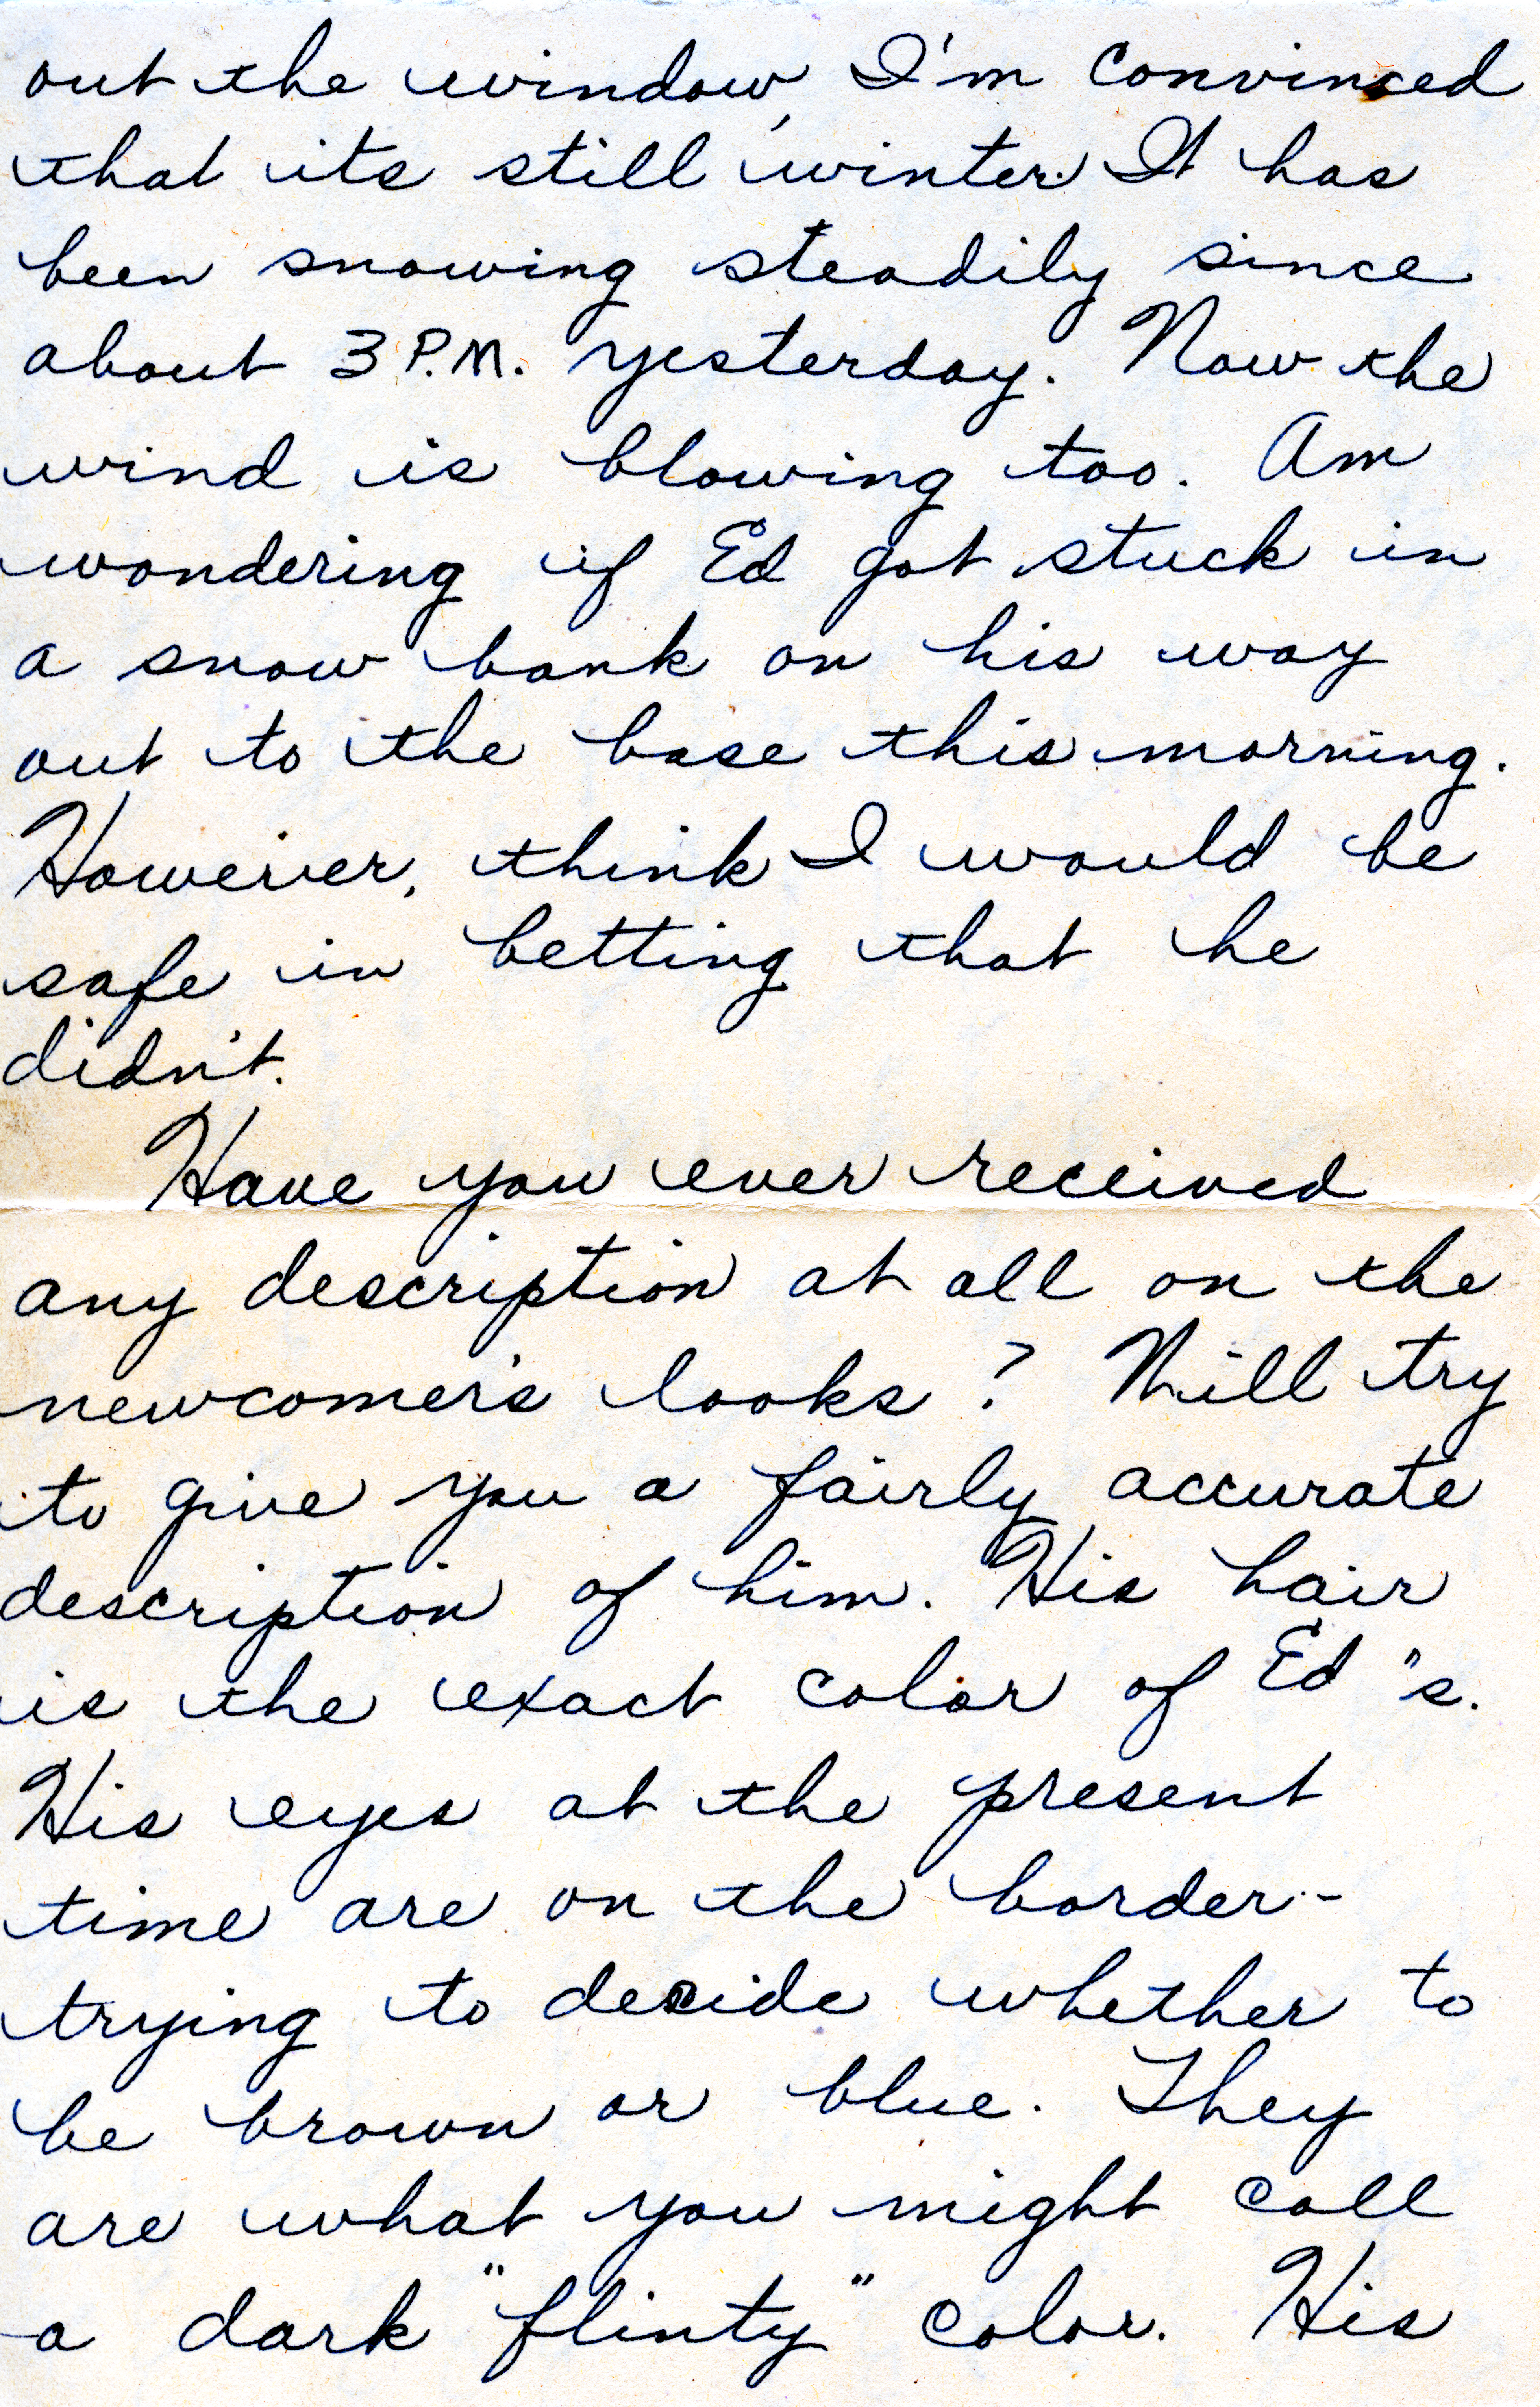 out the window, I'm convinced
that its still winter. It has
been snowing steadily since
about 3 P.M. yesterday. Now the
wind is blowing too. Am
wondering if Ed got stuck in
a snow bank on his way
out to the base this morning.
However, think I would be
safe in betting that he
didn't.
Have you ever received
any description at all on the
newcomer's looks? Will try
to give you a fairly accurate
description of him. His hair
is the exact color of Ed's.
His eyes at the present
time are on the border-
trying to decide whether to
be brown or blue. They
are what you might call
a dark "flinty" color. His